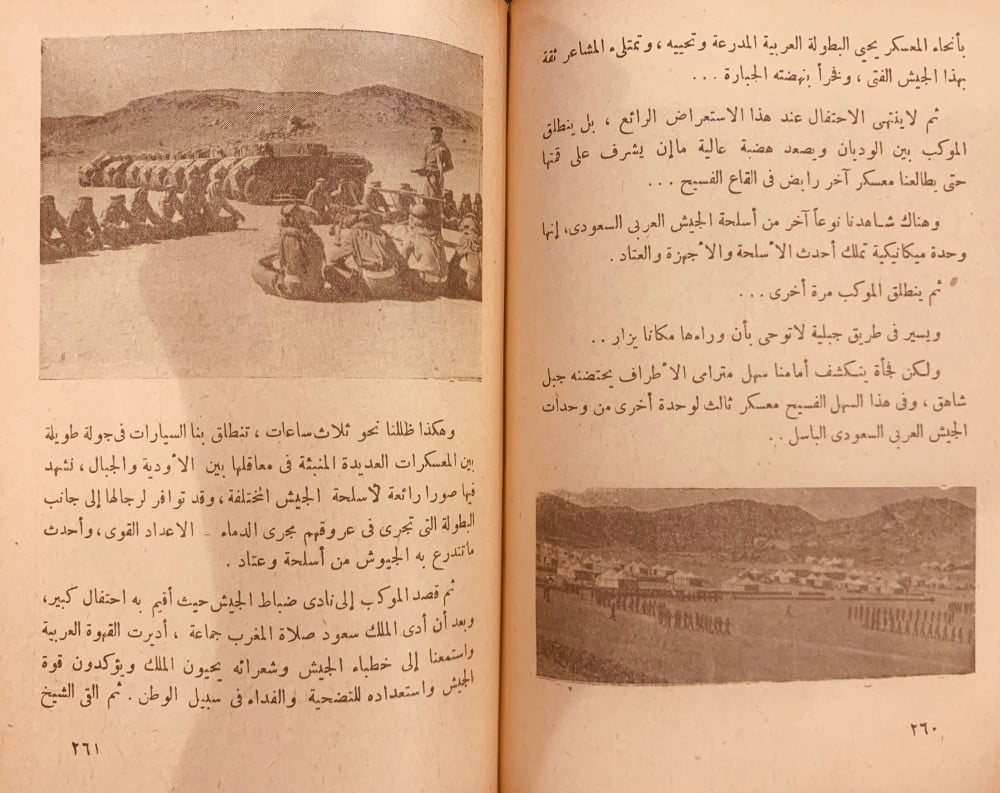 بأنحاء المعسكر يحيي البطولة العربية المدرعة وتحييه ، وتمتلىء المشاعر ثقة
بهذا الجيش الفتى ، وفخراً بنهضته الجبارة ...
ثم لاينتهى الاحتفال عند هذا الاستعراض الرائع ، بل ينطلق
الموكب بين الوديان ويصعد هضبة عالية ماإن يشرف على قمتها
حتى يطالعنا معسكر آخر رابض فى القاع الفسيح ...
وهناك شاهدنا نوعاً آخر من أسلحة الجيش العربى السعودى، إنها
وحدة ميكانيكية تملك أحدث الأسلحة والأجهزة والعتاد .
ثم ينطلق الموكب مرة أخرى ...
ويسير فى طريق جبلية لاتوحى بأن وراءها مكانا يزار ..
ولكن فجأة ينكشف أمامنا سهل مترامى الأطراف يحتضنه جبل
شاهق ، وفى هذا السهل الفسيح معسكر ثالث لوحدة أخرى من وحدات
الجيش العربى السعودى الباسل ..
٢٦٠
وهكذا ظللنا نحو ثلاث ساعات ، تنطلق بنا السيارات فى جولة طويلة
بين المعسكرات العديدة المنبثة فى معاقلها بين الأودية والجبال ، نشهد
فيها صورا رائعة لأسلحة الجيش المختلفة ، وقد توافر لرجالها إلى جانب
البطولة التى تجرى فى عروقهم مجرى الدماء - الاعداد القوى ، وأحدث
ماتتدرع به الجيوش من أسلحة وعتاد .
ثم قصد الموكب إلى نادى ضباط الجيش حيث أقيم به احتفال كبير،
وبعد أن أدى الملك سعود صلاة المغرب جماعة ، أديرت القهوة العربية
واستمعنا إلى خطباء الجيش وشعرائه يحيون الملك ويؤكدون قوة
الجيش واستعداده للتضحية والفداء فى سبيل الوطن . ثم القى الشيخ
٢٦١